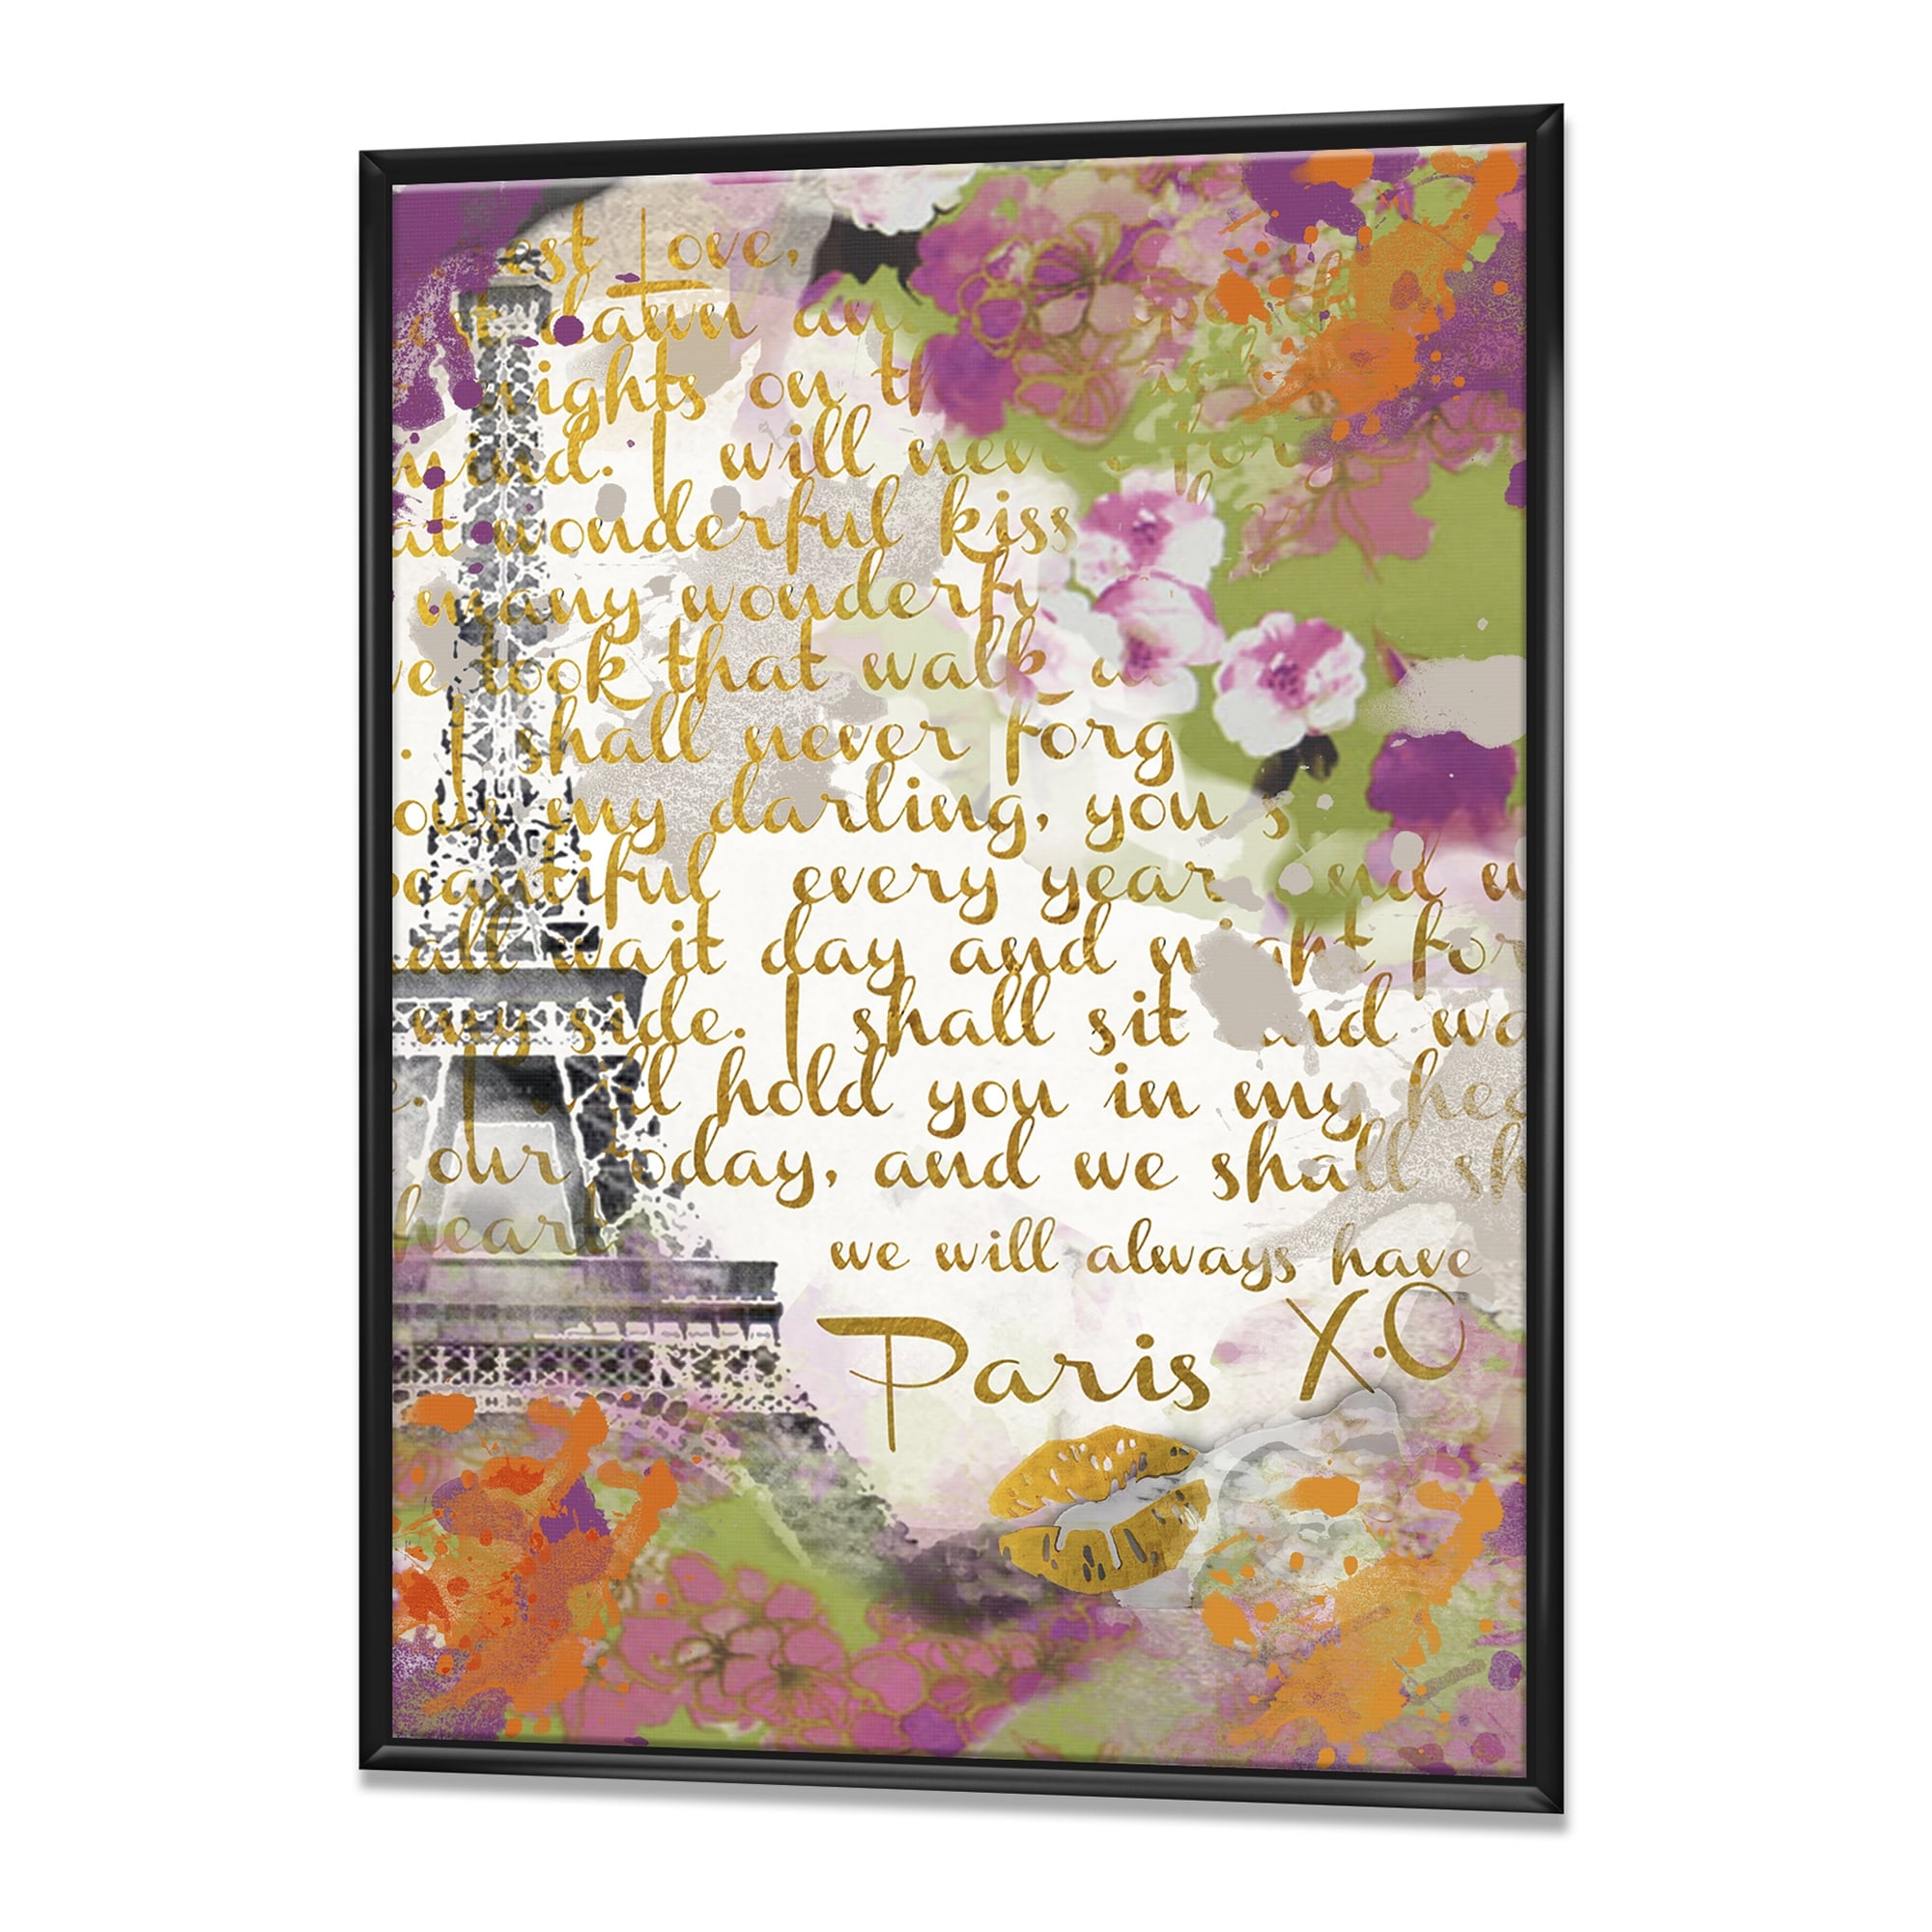 est Love,
dawn an
nights on th
mind. I will nev forg
at wonderful kiss
many wonderfu
ve took that walk a
. I shall never forg
my darling, you s
beautiful every year and w
all wait day and night for
my side. I shall sit and wa
e. I will hold you in my hea
our today, and we shall sh
heart
we will always have
Paris X.O